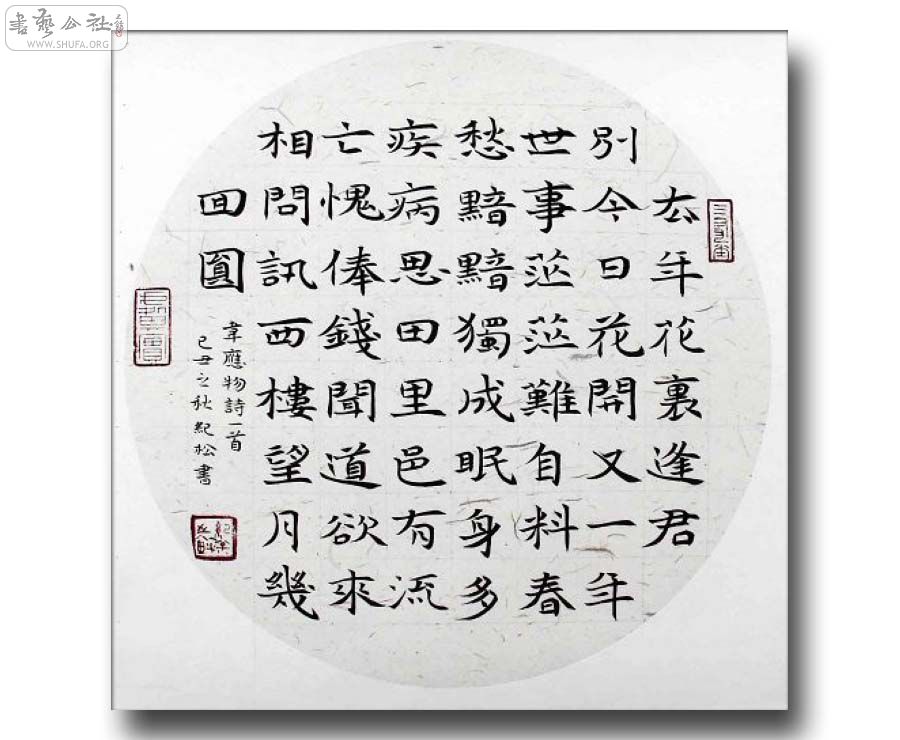 書藝公社
WWW.SHUFA.ORG
去年花裏逢君
別今日花開又一年
世事茫茫難自料春
愁黯黯獨成眠身多
疾病思田里邑有流
亡愧俸錢聞道欲來
相問訊西樓望月幾
囬圓
韋應物詩一首
己丑之秋紀松書